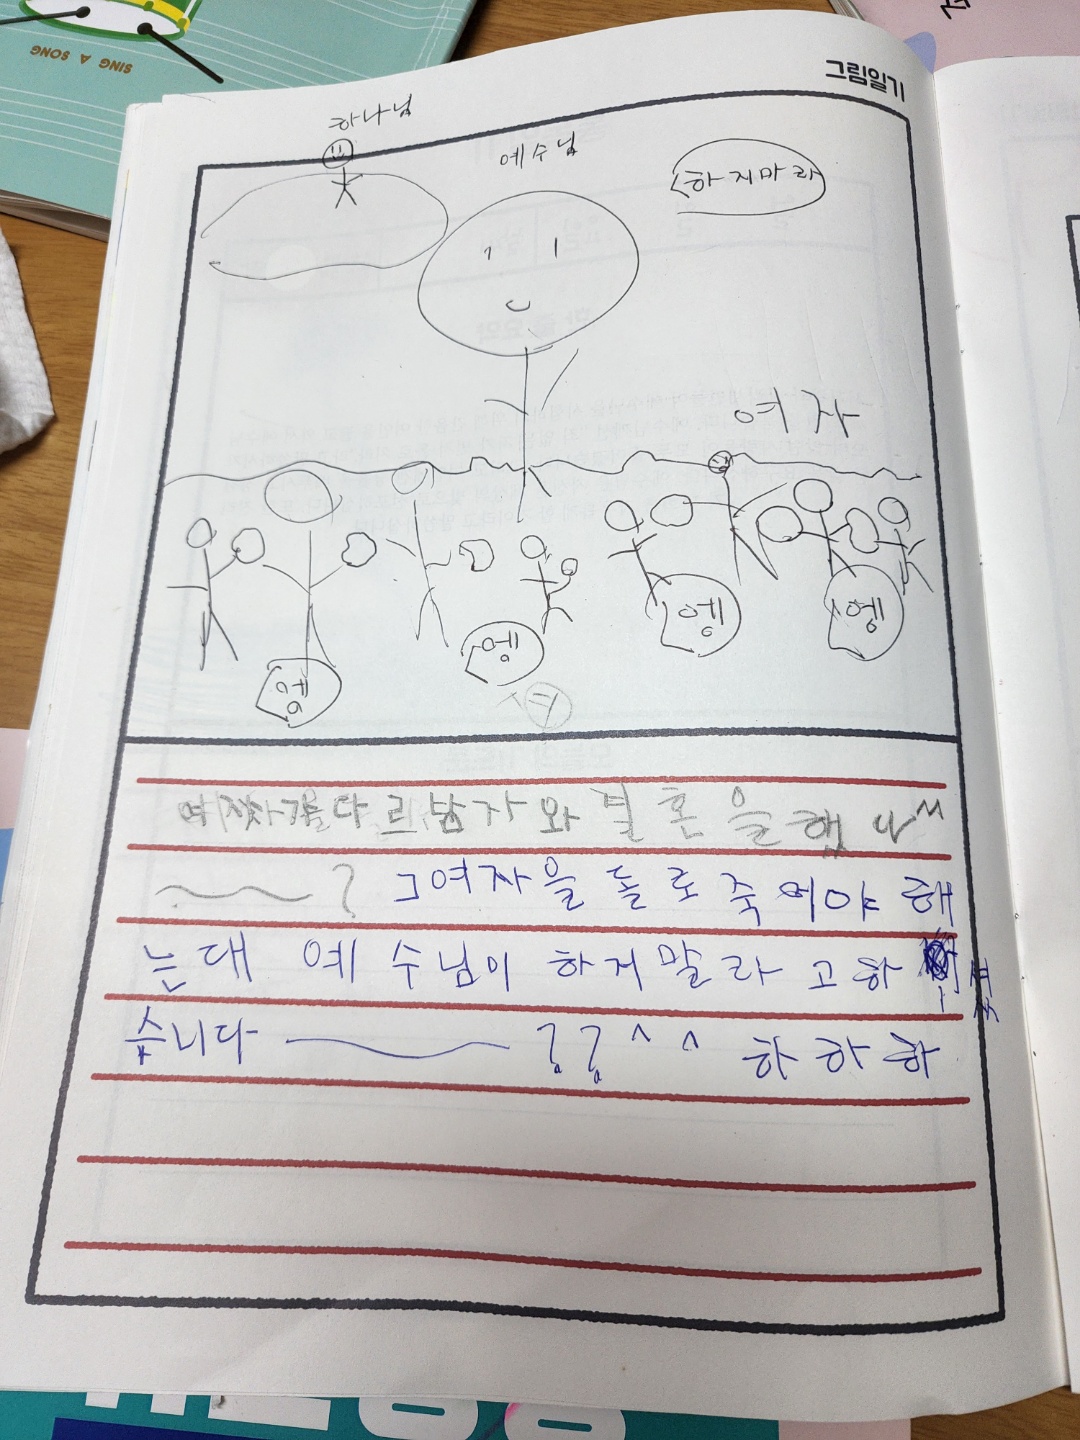 SING A SONG
그림일기
하나님
예수님
하지마라
여자
엥
엥
엥
엥
여자가 다르남자와 결혼을했나
~~? 그여자을 돌로 죽여야 해
는대 예수님이 하지말라고하셨
습니다 ~~ ?? ^ ^ 하하하